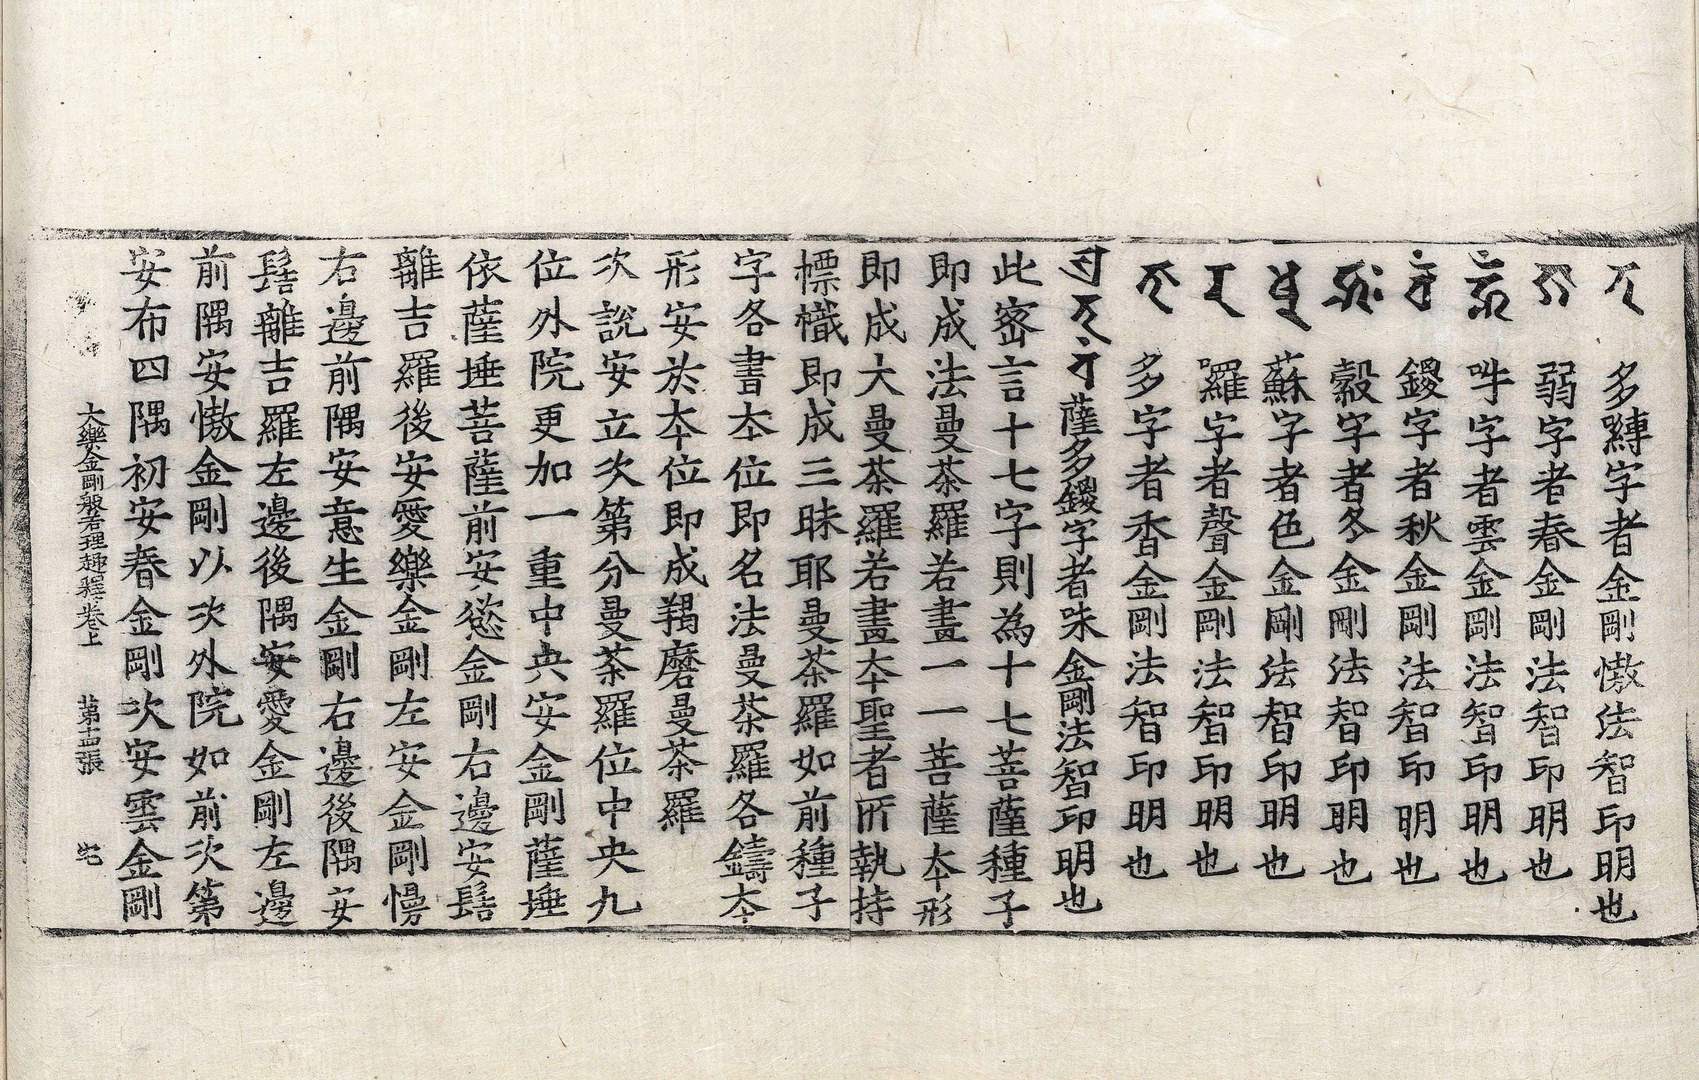 多嚩字者金剛慠法智印明也
弱字者春金剛法智印明也
吽字者雲金剛法智印明也
鑁字者秋金剛法智印明也
縠字者冬金剛法智印明也
蘇字者色金剛法智印明也
囉字者聲金剛法智印明也
多字者香金剛法智印明也
薩多鑁字者味金剛法智印明也
此密言十七字則為十七菩薩種子
即成法曼荼羅若畫一一菩薩夲形
即成大曼荼羅若畫夲聖者所執持
幖幟即成三昧耶曼荼羅如前種子
字各書夲位即名法曼荼羅各鑄夲
形安於夲位即成羯磨曼荼羅
次說安立次第分曼荼羅位中央九
位外院更加一重中央安金剛薩埵
依薩埵菩薩前安慾金剛右邊安髻
離吉羅後安愛樂金剛左安金剛慢
右邊前隅安意生金剛右邊後隅安
髻離吉羅左邊後隅安愛金剛左邊
前隅安慠金剛以次外院如前次第
安布四隅初安春金剛次安雲金剛
大樂金剛般若理趣釋卷上 第十四張 宅